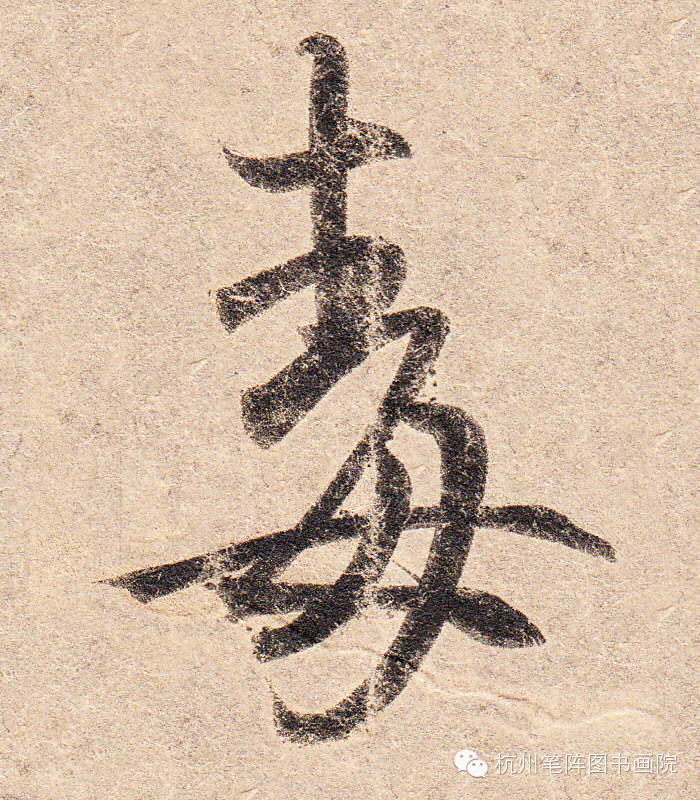 毒
杭州笔阵图书画院